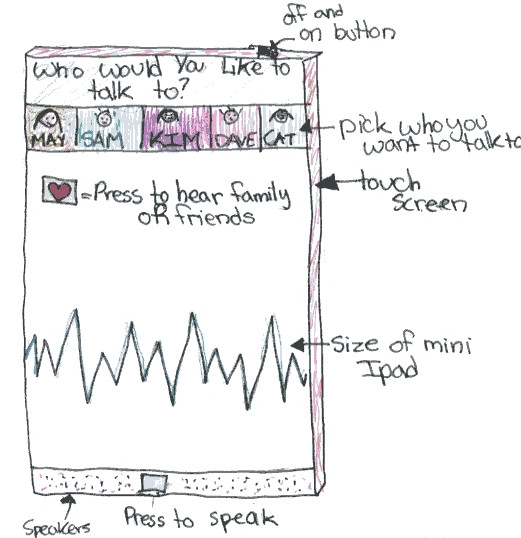 off and
on button
Who would You Like to
talk to?
MAY SAM KIM DAVE CAT
pick who you
want to talk to
=Press to hear family
OR friends
touch
Screen
Size of mini
Ipad
Speakers
Press to speak